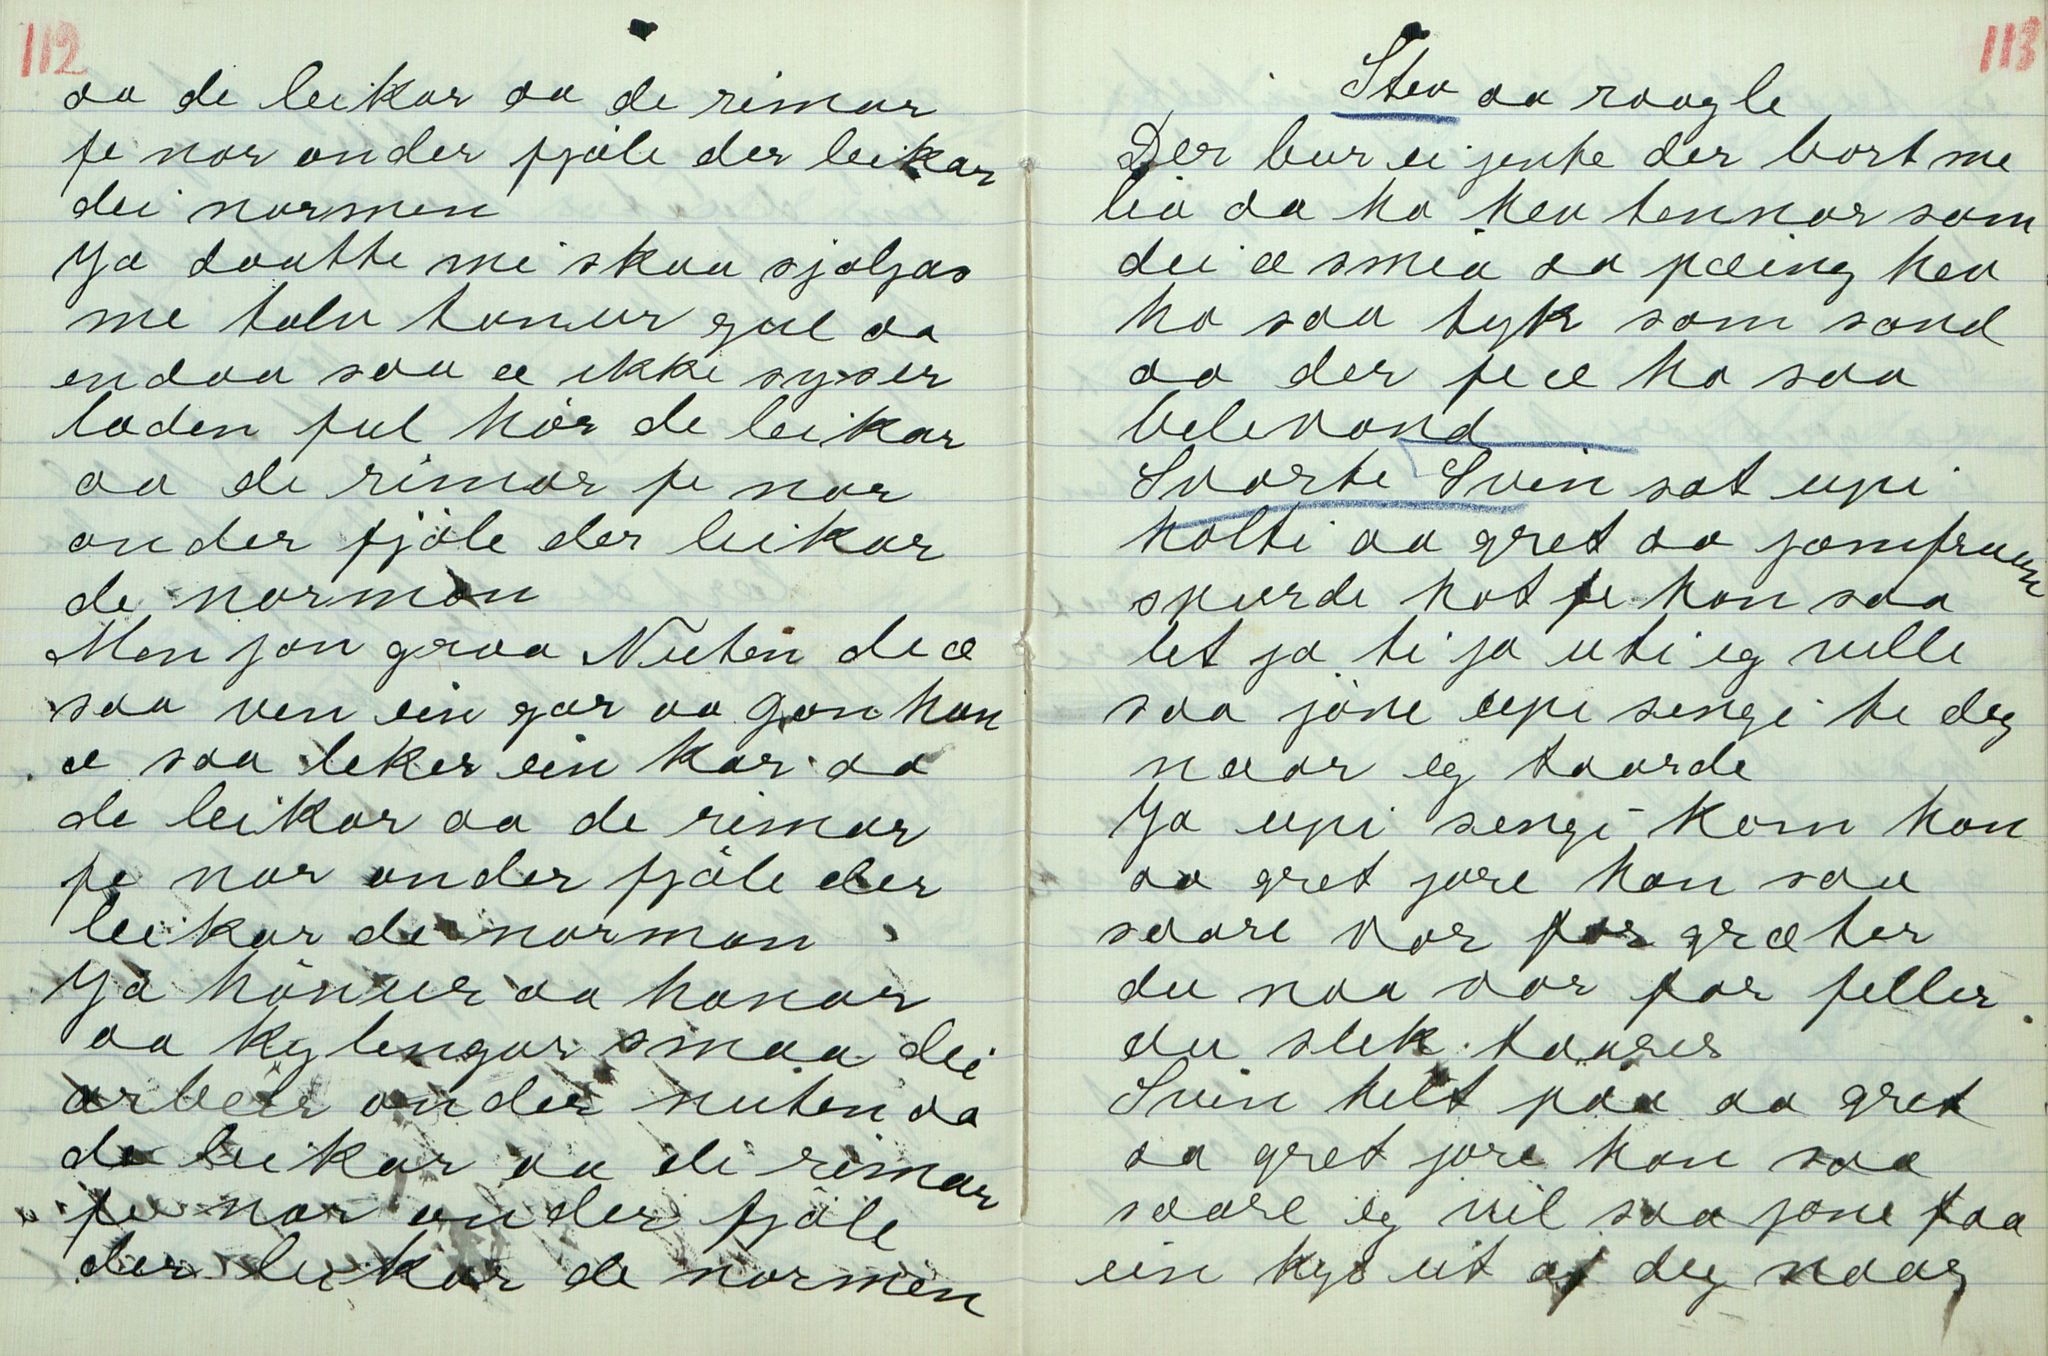 112
aa de leikar aa de rimar
fe nor onder fjöle der leikar
dei normen
Ja daatte mi skaa sjølgas
me tolv tonur gul aa
endaa saa æ ikki syster
laden ful hör de leikar
aa de rimar fe nor
onder fjöle der leikar
de normon
Men jon graa Nuten de æ
saa ven ein gar aa Gon han
æ saa leker ein kar aa
de leikar aa de rimar
fe nor onder fjöle der
leikar de normon
Ja hönur aa hanar
aa kylengar smaa dei
arbeier onder nuten aa
de leikar aa de rimar
fe nor onder fjöle
der leikar de normen
113
Stev aa raagle
Der bur ei jente der bort me
lia aa ho hev tennar som
dei æ smia aa pæing hev
ho saa tyk som sand
aa der fe æ ho saa
belevand
Svarte Svein sat upi
holti aa gret aa jomfruen
spurde hot fe han saa
let ja ti ja uti eg ville
saa jöne upi sengi te deg
naar eg taarde
Ja upi sengi kom han
aa gret jore han saa
saare vor for græter
du naa vor for feller
du slik taarer
Svein helt paa aa gret
aa gret jore han saa
saare eg vil saa jöne faa
ein kys ut af deg naag